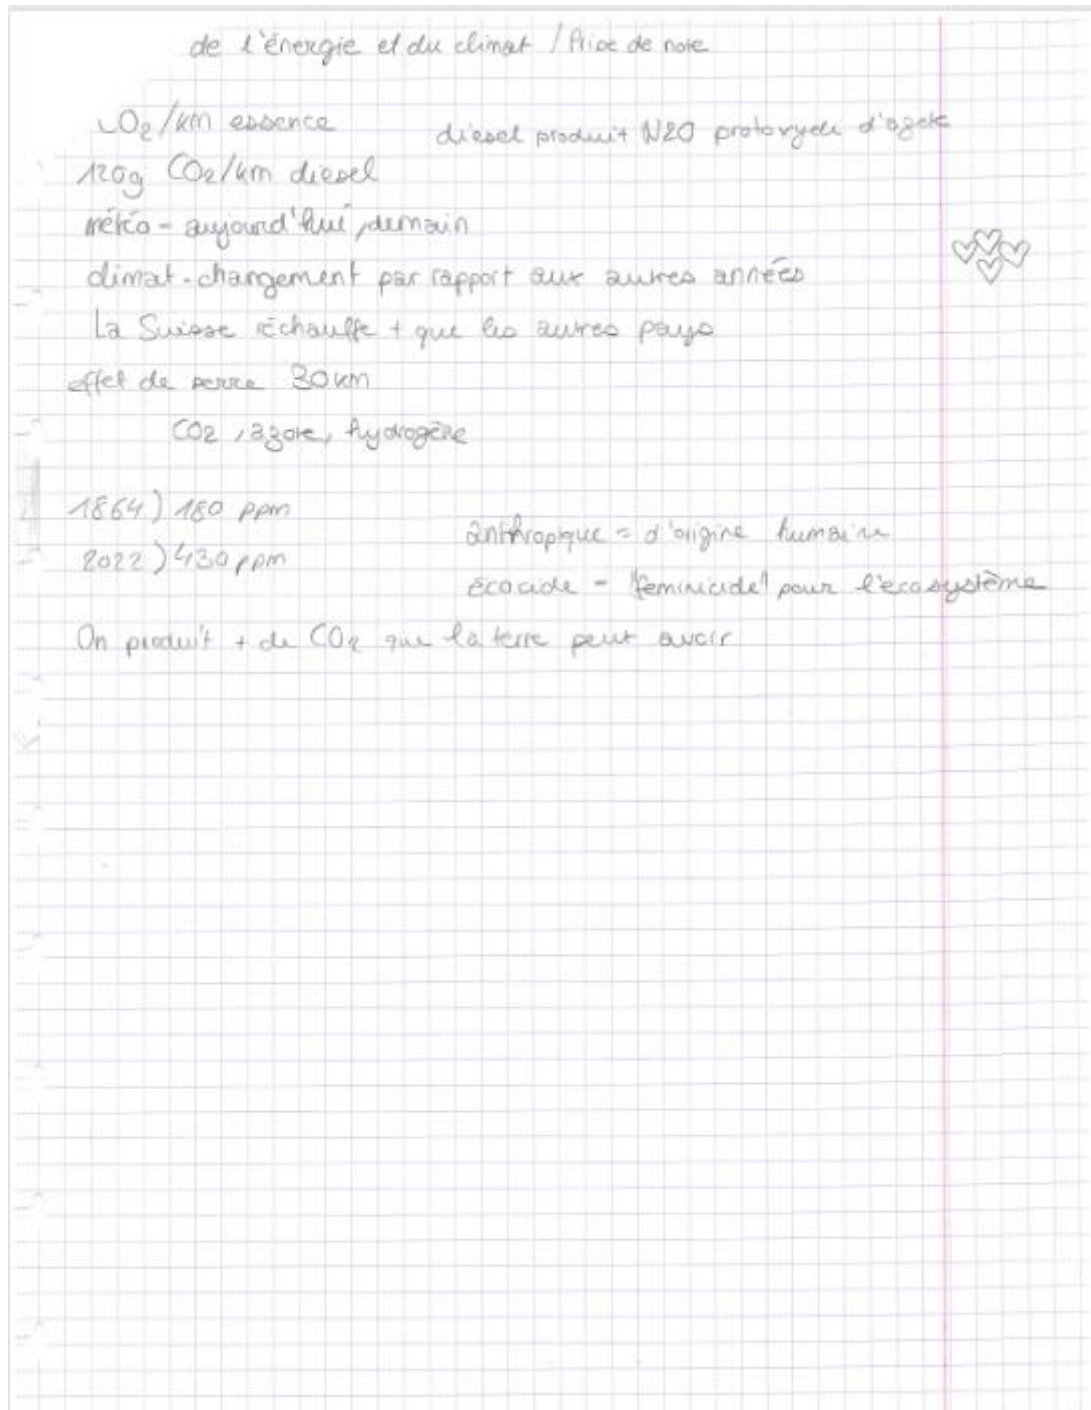 de l'énergie et du climat / Prise de note
CO2/km essence
diesel produit N2O protoxyde d'azote
120g CO2/km diesel
météo - aujourd'hui, demain
climat - changement par rapport aux autres années
La Suisse réchauffe + que les autres pays
effet de serre 30km
CO2, azote, hydrogène
1864) 180 ppm
2022) 430 ppm
anthropique = d'origine humaine
écocide - "feminicide" pour l'ecosystème
On produit + de CO2 que la terre peut avoir